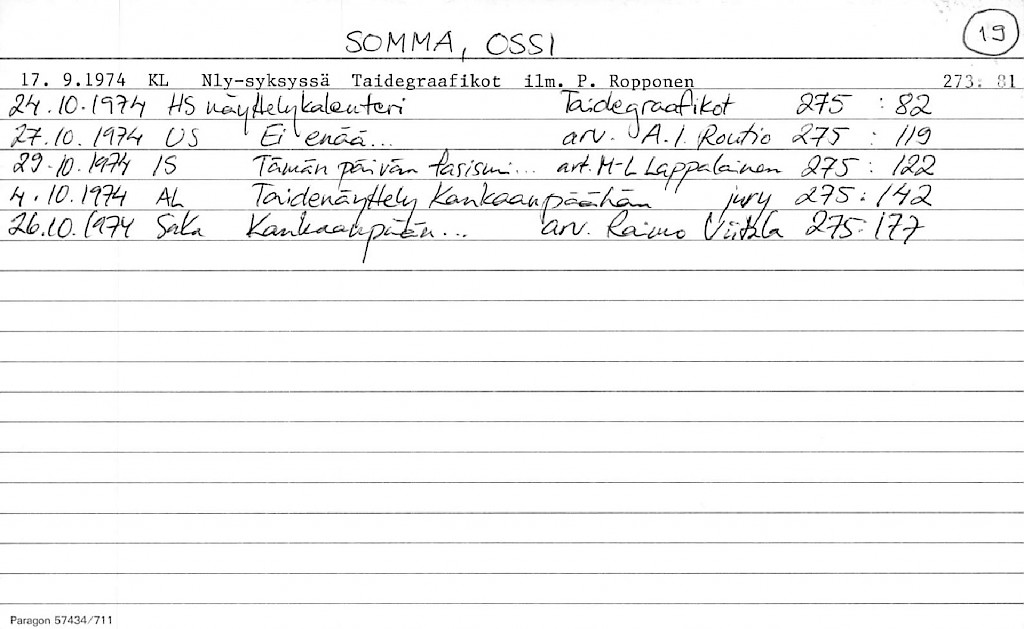 SOMMA, OSSI
19
17. 9.1974 KL Nly-syksyssä Taidegraafikot ilm. P. Ropponen 273: 81
24.10.1974 HS näyttelykalenteri Taidegraafikot 275 : 82
27.10.1974 US Ei enää... arv. A.I. Routio 275 : 119
29.10.1974 IS Tämän päivän fasismi... art. M-L Lappalainen 275 : 122
4.10.1974 AL Taidenäyttely Kankaanpäähän jury 275 : 142
26.10.1974 SaKa Kankaanpään... arv. Raimo Viitala 275:177
Paragon 57434/711